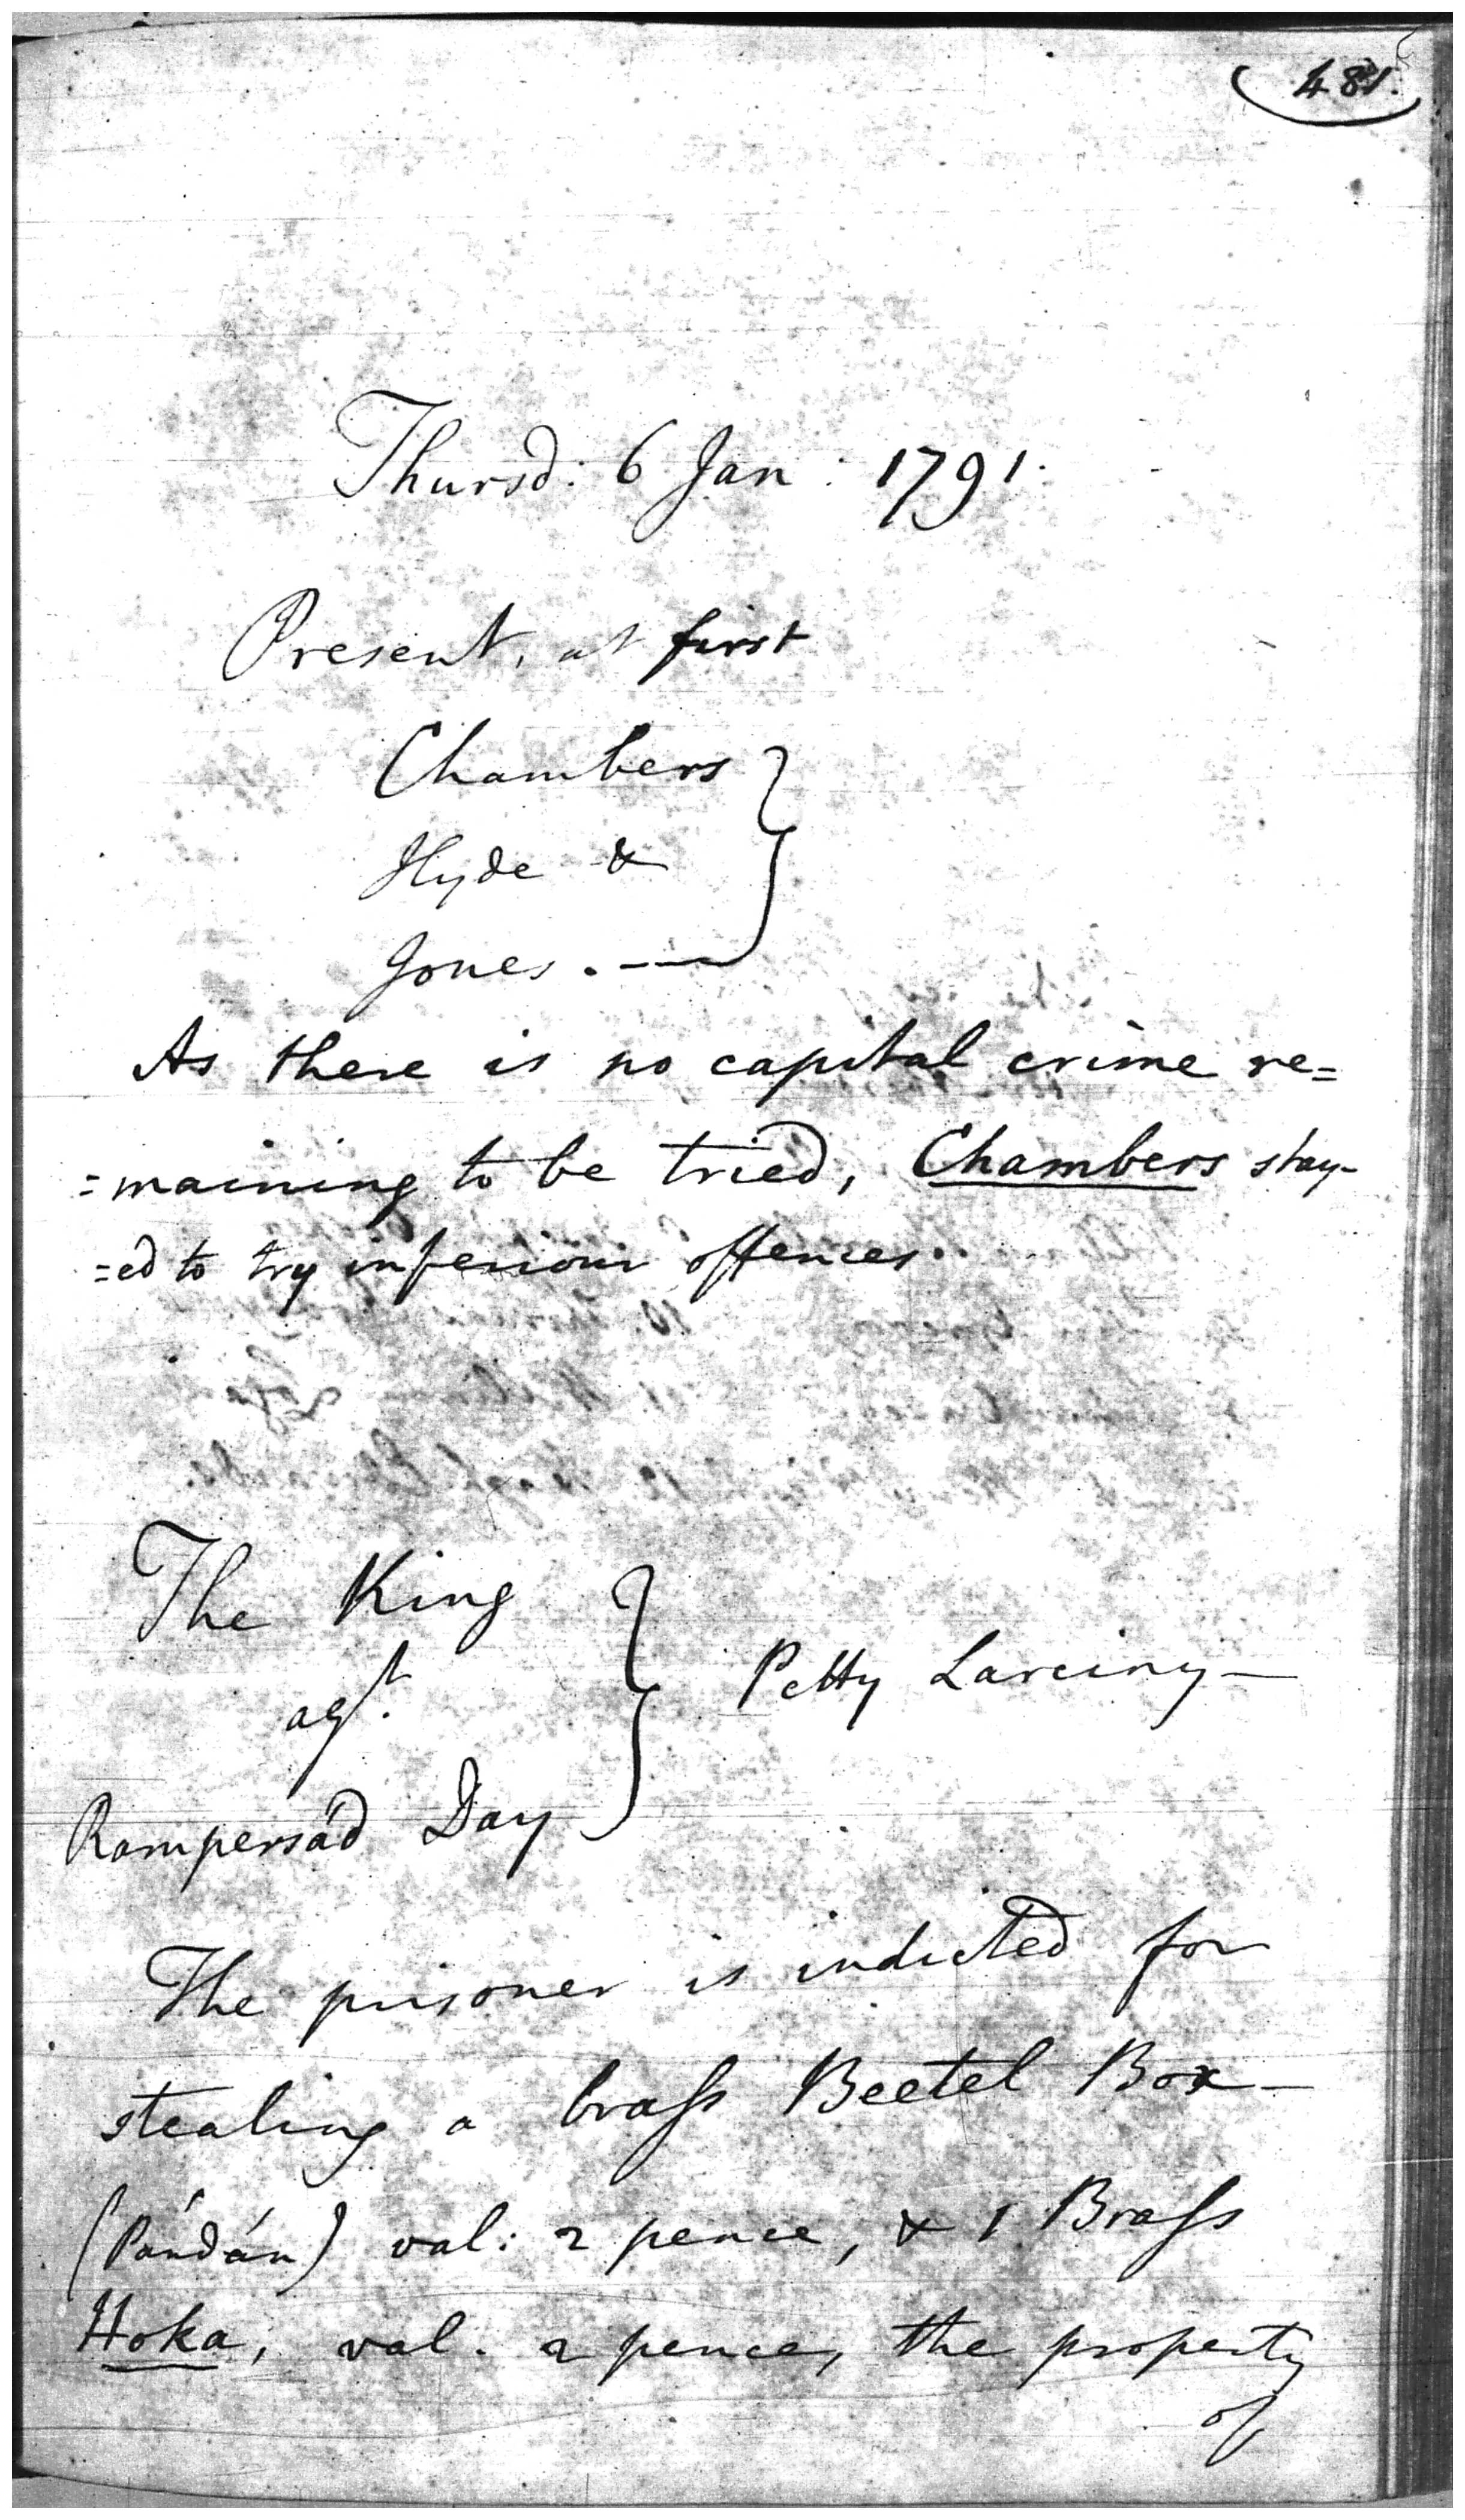 481.
Thursd: 6 Jan: 1791.
Present, at first
Chambers
Hyde &
Jones. —
As there is no capital crime re=
=maining to be tried, Chambers stay-
=ed to try inferiour offences.
The King
agst.
Rampersád Day
Petty Larciny —
The prisoner is indicted for
stealing a brass Beetel Box —
(Pándán) val: 2 pence, & 1 Brass
Hoka, val. 2 pence, the property
of